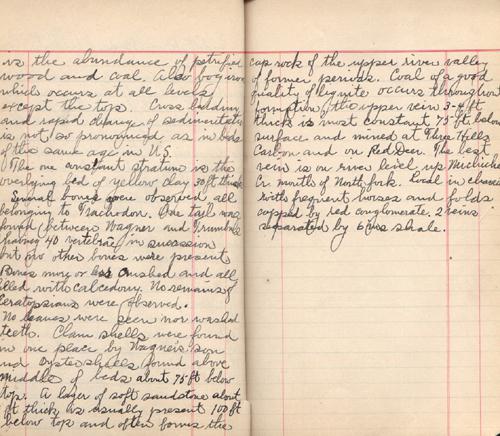 is the abundance of petrified
wood and coal. Also bog iron
which occurs at all levels
except the top. Cross bedding
and rapid change of sedimentation
is not so pronounced as in beds
of the same age in U.S.
The one constant stratum is the
overlying bed of yellow clay 30 ft thick
Several bones were observed all
belonging to Trachodon. One tail was
found (between Wagner and Trumbull
having 40 vertebrae in succession
but no other bones were present
Bones more or less crushed and all
filled with calcedony. No remains of
Ceratopsians were observed.
No leaves were seen nor washed
teeth. Clam shells were found
in one place by Wagner's son
and Oyster shells found above
middle of beds about 75 ft below
top. A layer of soft sandstone about
ft thick is usually present 100 ft
below top and often forms the
cap rock of the upper river valley
of former periods. Coal of a good
quality of lignite occurs throughout
formation, the upper vein 3-4 ft
thick is most constant 75 ft. below
surface and mined at Three Hills
Carbon and on Red Deer. The best
vein is on river level up
Cr mouth of North fork. Coal in
with frequent horses and folds
capped by red conglomerate. 2 veins
separated by 6 shale.